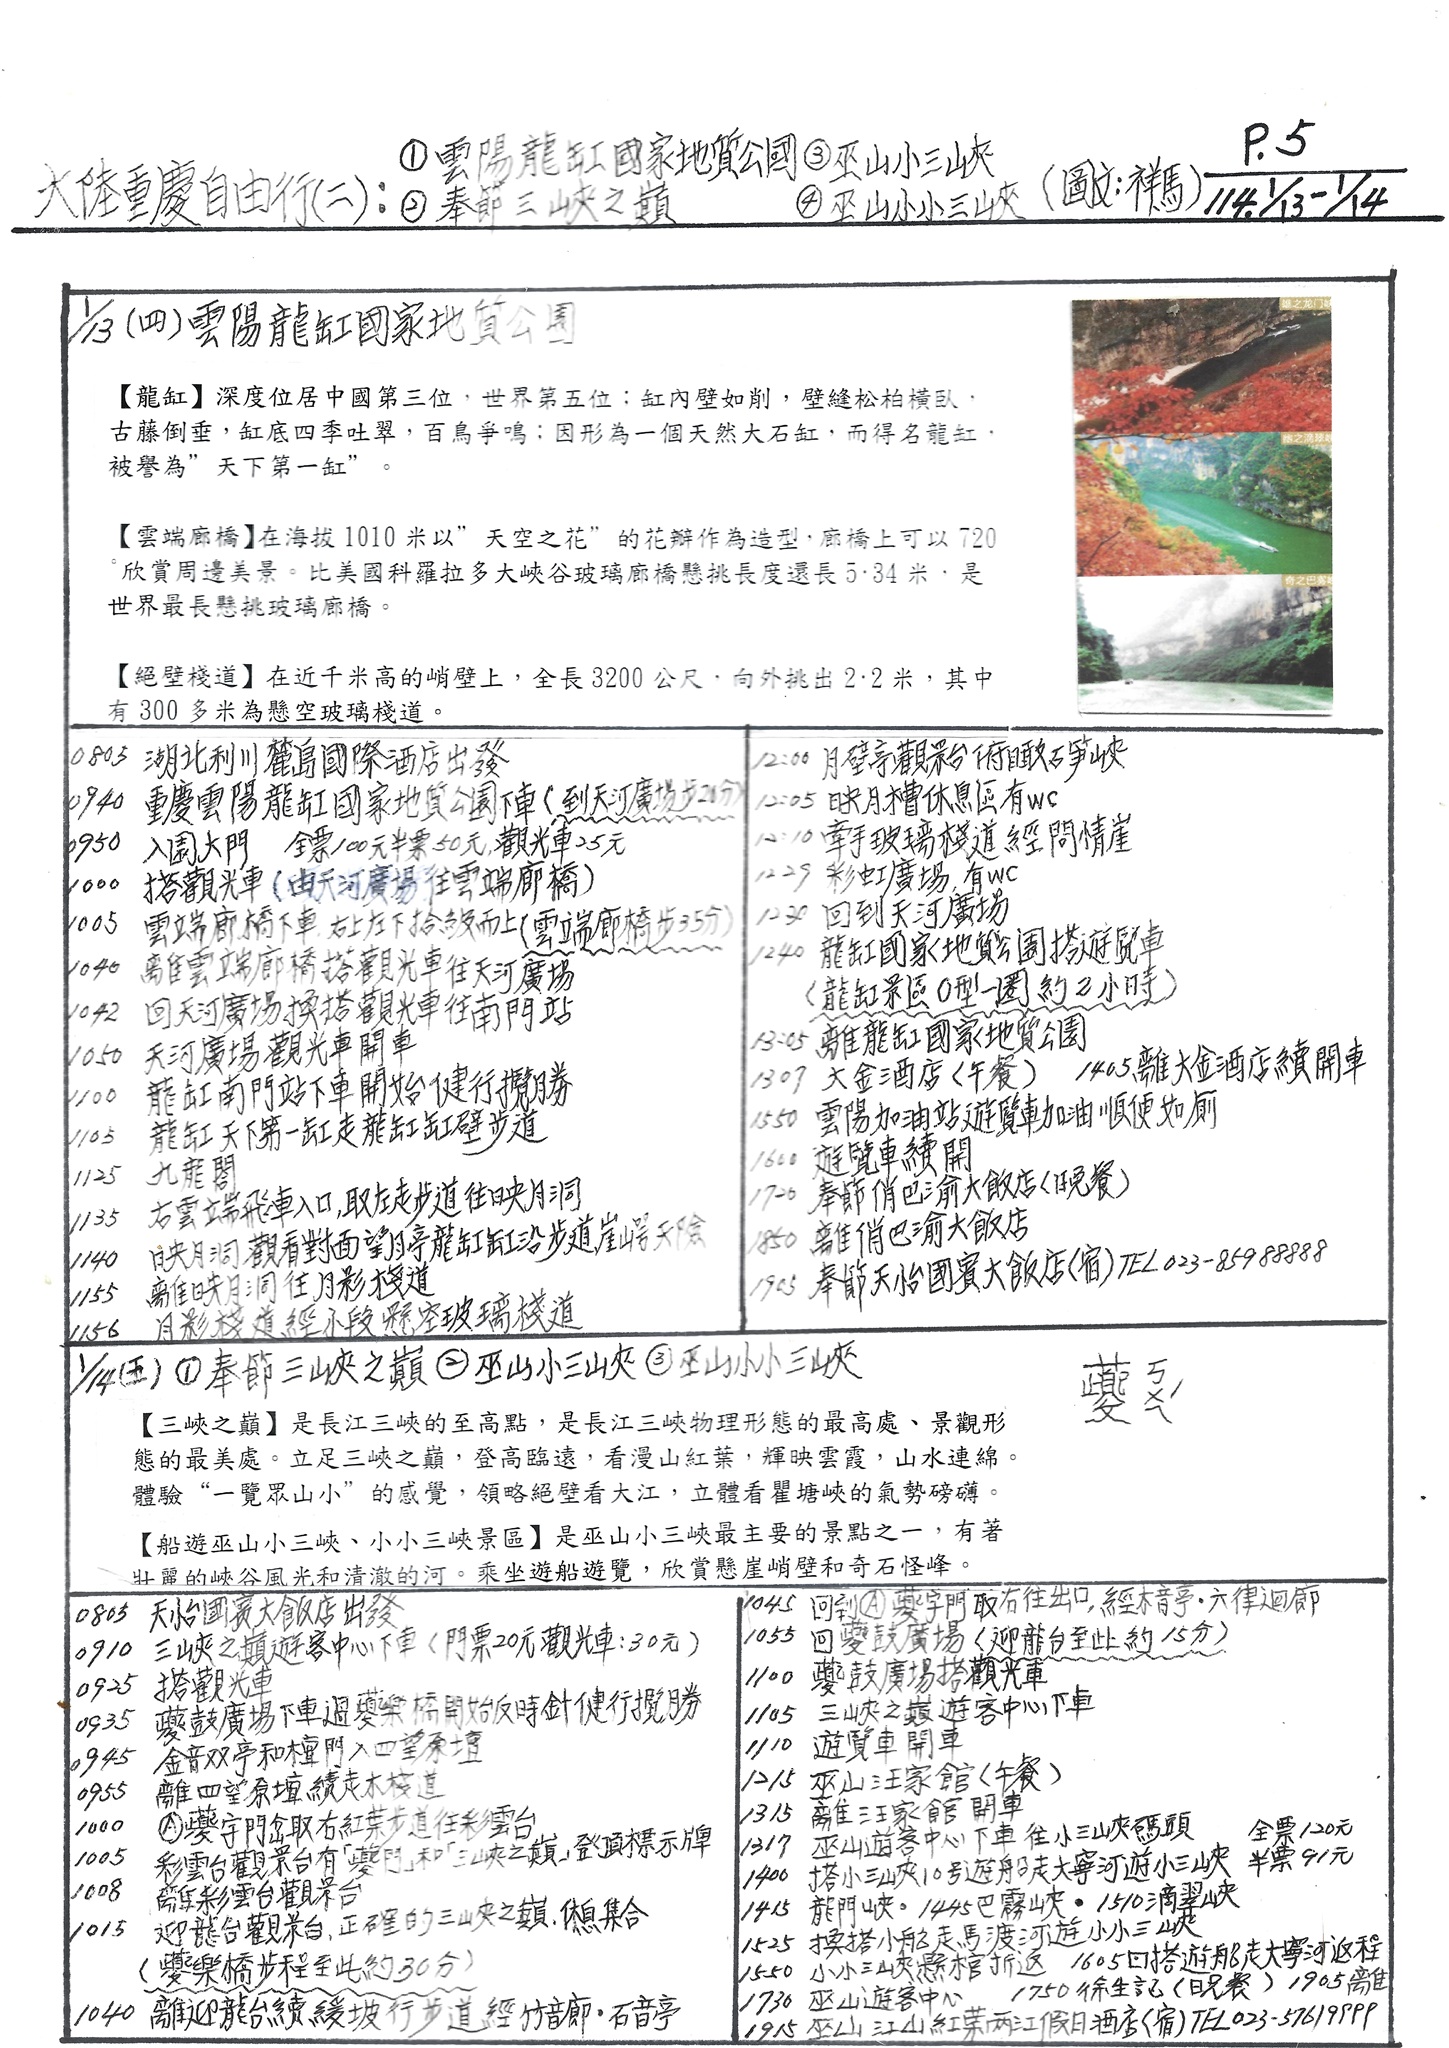 P.5
大陸重慶自由行(二):
①雲陽龍缸國家地質公園③巫山小三峽
②奉節三峽之巔 ④巫山小小三峽
(圖文:祥馬)
114.1/13-1/14
1/13(四)雲陽龍缸國家地質公園
【龍缸】深度位居中國第三位,世界第五位;缸內壁如削,壁縫松柏橫臥,
古藤倒垂,缸底四季吐翠,百鳥爭鳴;因形為一個天然大石缸,而得名龍缸,
被譽為”天下第一缸”。
【雲端廊橋】在海拔1010米以”天空之花”的花瓣作為造型,廊橋上可以720
°欣賞周邊美景。比美國科羅拉多大峽谷玻璃廊橋懸挑長度還長5.34米,是
世界最長懸挑玻璃廊橋。
【絕壁棧道】在近千米高的峭壁上,全長3200公尺,向外挑出2.2米,其中
有300多米為懸空玻璃棧道。
雄之龙门峡
奇之巴雾峡
0805 湖北利川麓島國際酒店出發
0940 重慶雲陽龍缸國家地質公園下車(到天河廣場步20分)
0950 入園大門 全票100元半票50元,觀光車25元
1000 搭觀光車(由天河廣場往雲端廊橋)
1005 雲端廊橋下車,右上左下拾級而上(雲端廊橋步35分)
1040 離雲端廊橋搭觀光車往天河廣場
1042 回天河廣場換搭觀光車往南門站
1050 天河廣場觀光車開車
1100 龍缸南門站下車開始健行攬勝
1105 龍缸天下第一缸走龍缸缸壁步道
1125 九龍閣
1135 右雲端飛車入口,取左走步道往映月洞
1140 映月洞觀看對面望月亭龍缸缸沿步道,崖崿天險
1155 離映月洞往月影棧道
1156 月影棧道經小段懸空玻璃棧道
12:00 月壁亭觀景台俯瞰石筍峽
12:05 映月槽休息區有WC
12:10 牽手玻璃棧道經問情崖
1229 彩虹廣場,有WC
1230 回到天河廣場
1240 龍缸國家地質公園搭遊覽車
(龍缸景區O型一圈約2小時)
13:05 離龍缸國家地質公園
1307 大金酒店(午餐) 1405離大金酒店續開車
1550 雲陽加油站遊覽車加油順便如廁
1600 遊覽車續開
1720 奉節俏巴渝大飯店(晚餐)
1850 離俏巴渝大飯店
1905 奉節天怡國賓大飯店(宿)TEL023-85988888
1/14(五)①奉節三峽之巔②巫山小三峽③巫山小小三峽
夔 ㄎㄨㄟˊ
【三峽之巔】是長江三峽的至高點,是長江三峽物理形態的最高處、景觀形
態的最美處。立足三峽之巔,登高臨遠,看漫山紅葉,輝映雲霞,山水連綿。
體驗“一覽眾山小”的感覺,領略絕壁看大江,立體看瞿塘峽的氣勢磅礴。
【船遊巫山小三峽、小小三峽景區】是巫山小三峽最主要的景點之一,有著
壯麗的峽谷風光和清澈的河。乘坐遊船遊覽,欣賞懸崖峭壁和奇石怪峰。
0805 天怡國賓大飯店出發
0910 三峽之巔遊客中心下車(門票20元觀光車:30元)
0925 搭觀光車
0935 夔鼓廣場下車過夔樂橋開始反時針健行攬勝
0945 金音双亭和橦門入四望原壇
0955 離四望原壇,續走木棧道
1000 Ⓐ夔字門岔取右紅葉步道往彩雲台
1005 彩雲台觀景台有「夔門」和「三峽之巔」登頂標示牌
1008 離彩雲台觀景台
1015 迎龍台觀景台,正確的三峽之巔,休息集合
(夔樂橋步程至此約30分)
1040 離迎龍台續緩坡行步道經竹音廊.石音亭
1045 回到Ⓐ夔字門取右往出口,經木音亭.六律迴廊
1055 回夔鼓廣場(迎龍台至此約15分)
1100 夔鼓廣場搭觀光車
1105 三峽之巔遊客中心下車
1110 遊覽車開車
1215 巫山汪家館(午餐)
1315 離汪家館開車
1317 巫山遊客中心下車往小三峽碼頭 全票120元
1400 搭小三峽10号遊船走大寧河遊小三峽 半票91元
1415 龍門峽.1445巴霧峽.1510滴翠峽
1525 換搭小船走馬渡河遊小小三峽
1550 小小三峽懸棺折返 1605回搭遊船走大寧河返程
1730 巫山遊客中心 1750徐生記(晚餐) 1905離
1915 巫山江山紅葉兩江假日酒店(宿)TEL023-57619999